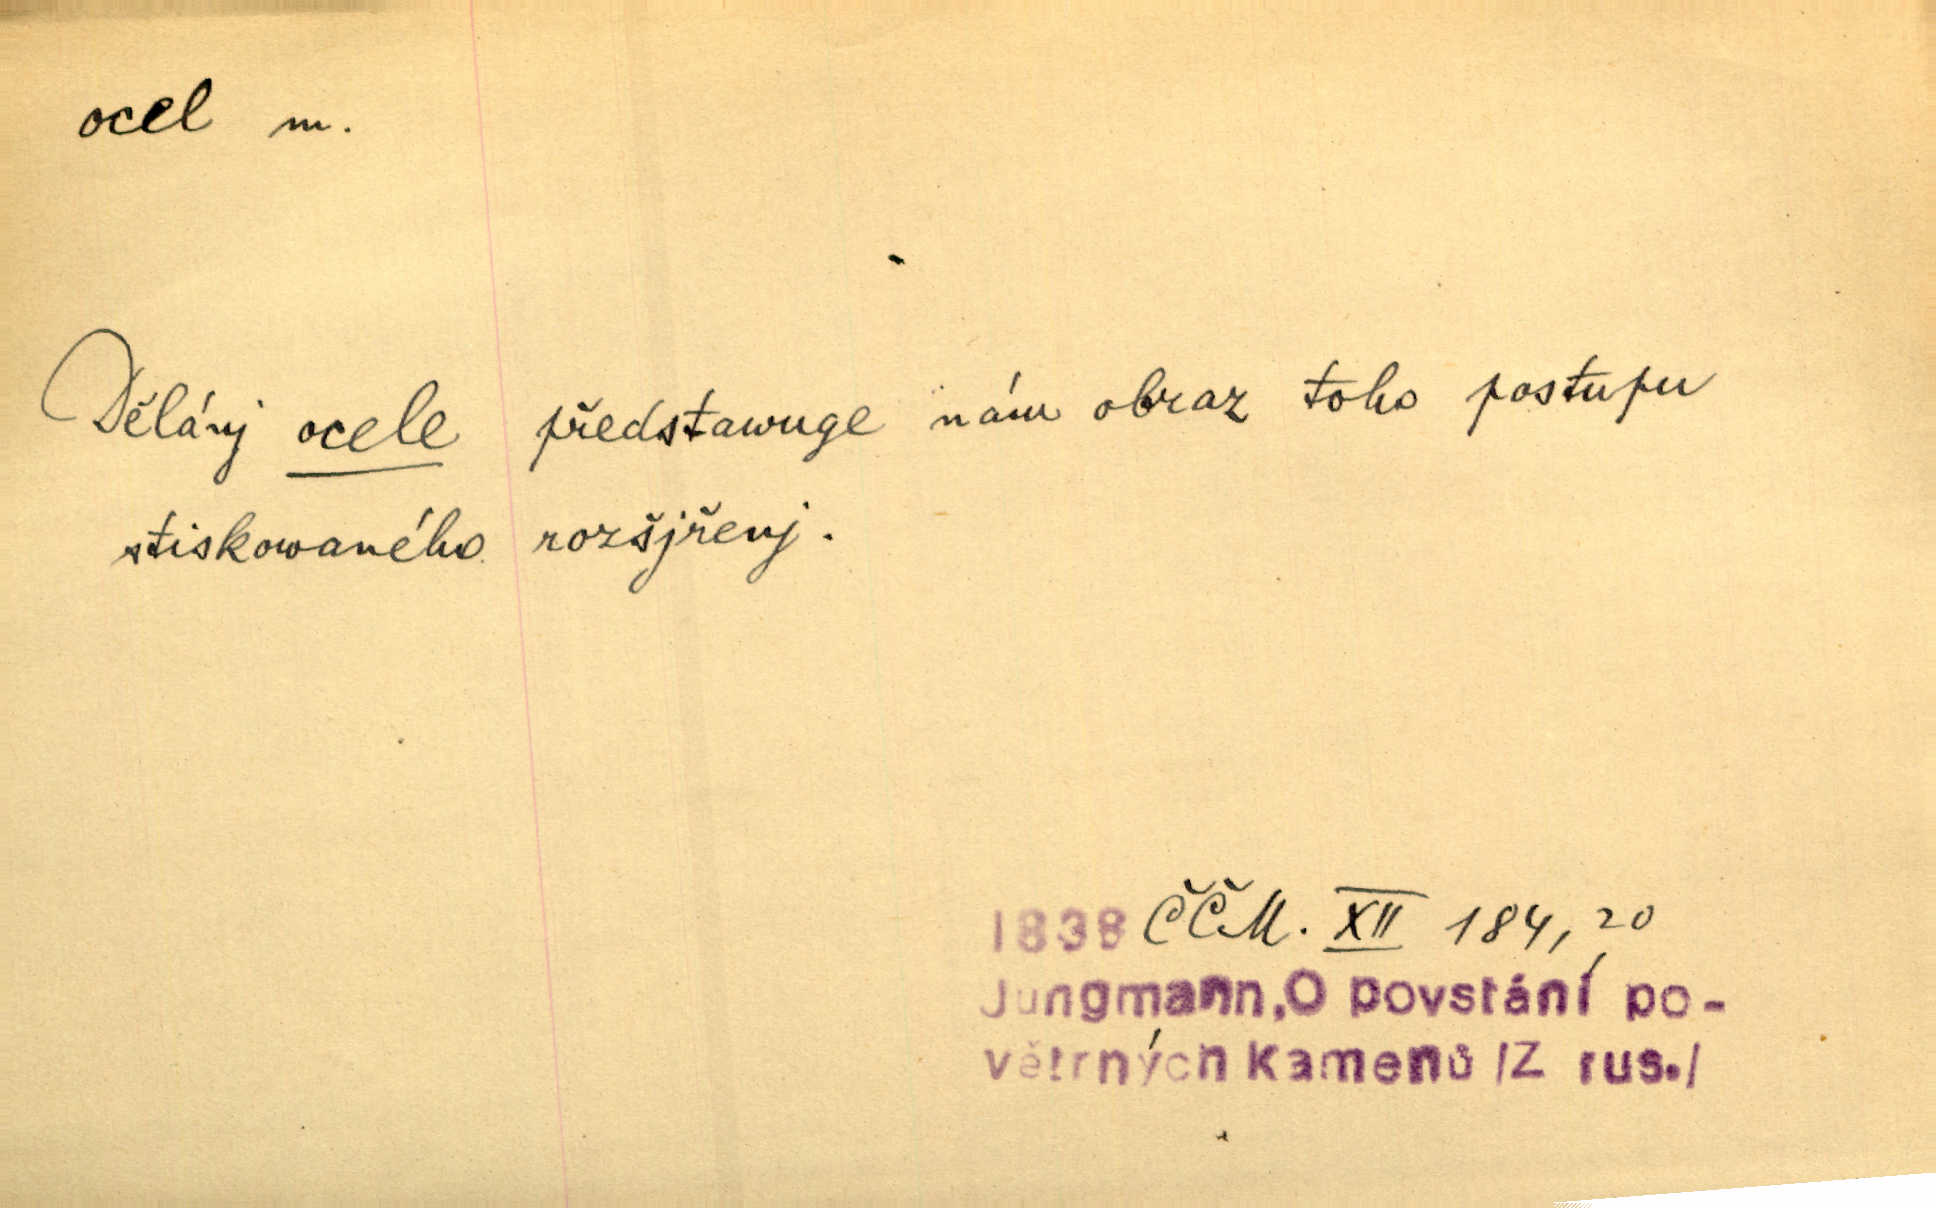 ocel m.
Dělánj ocele představuge nám obraz toho postupu
stiskowaného rozšjřenj.
1838 ČČM. XII 184, 20
Jungmann, O povstání po-
větrných kamenů /Z rus./